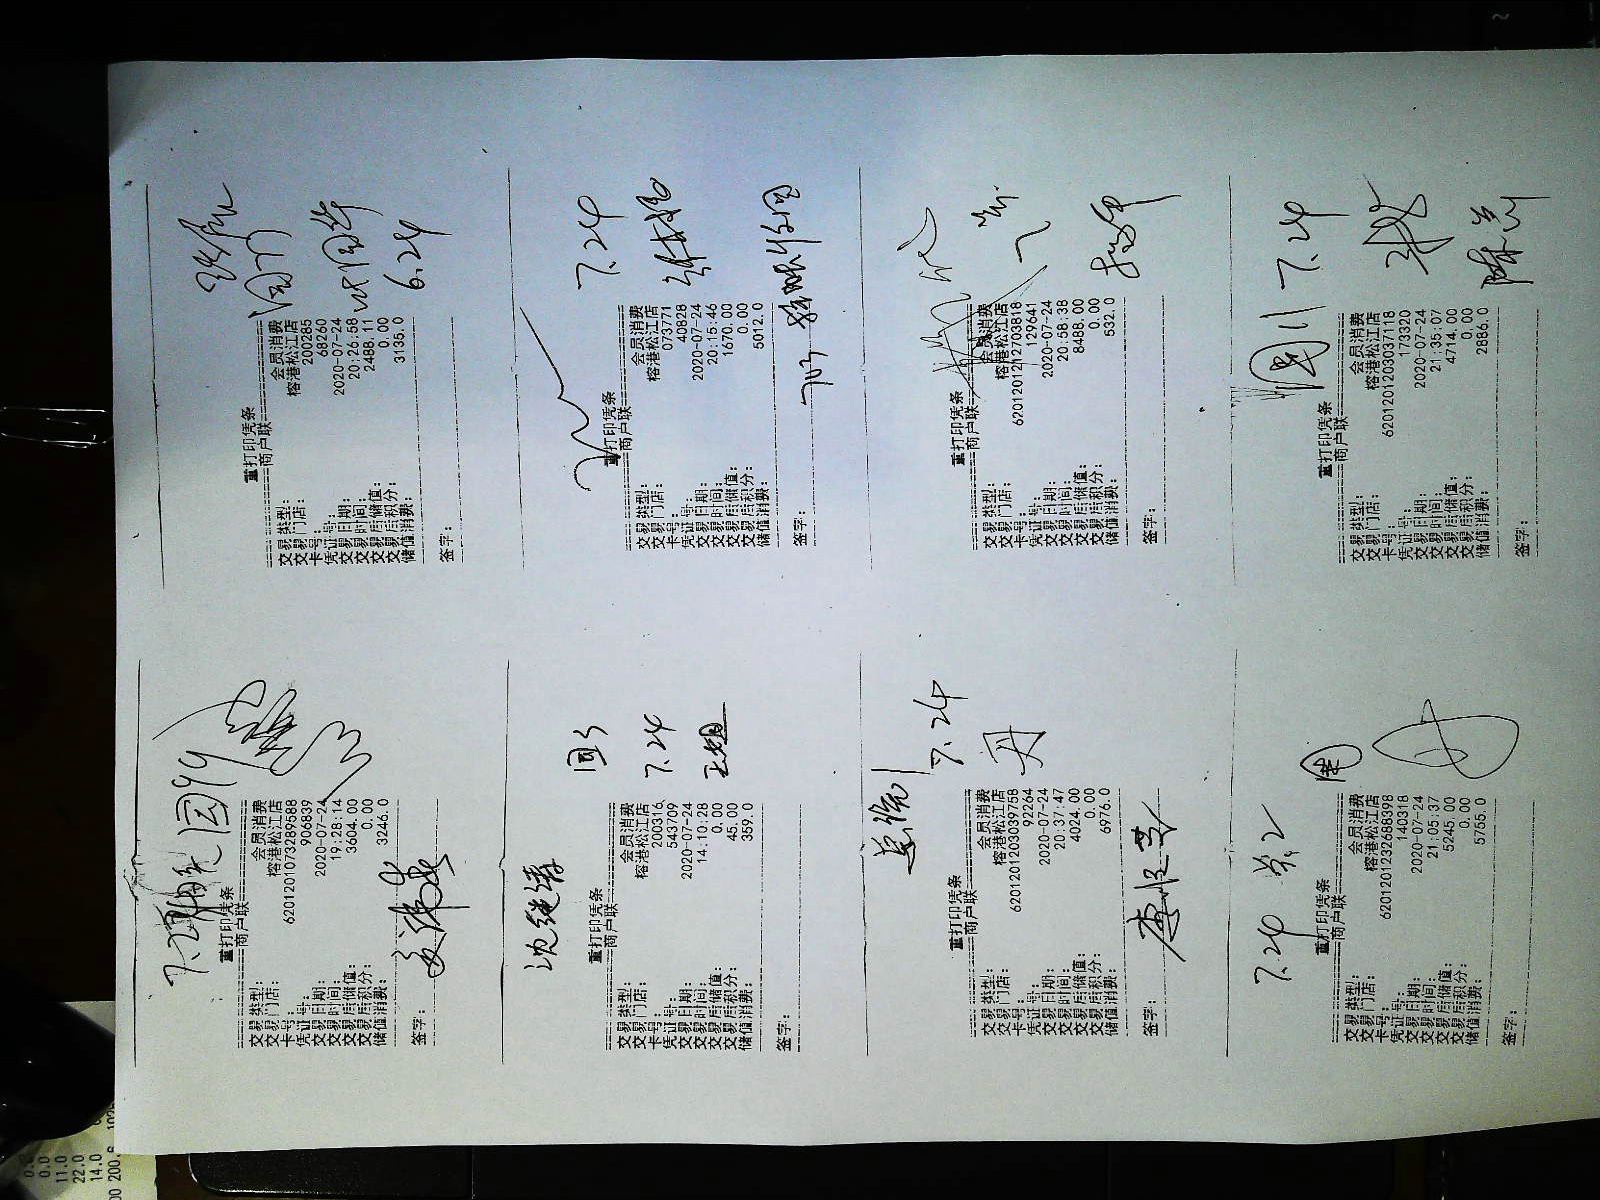 重打印凭条
商户联
交易类型： 会员消费
交易门店： 榕港松江店
卡号： 6201201073289588
凭证号： 906839
交易日期： 2020-07-24
交易时间： 19:28:14
交易后储值： 3604.00
交易后积分： 0.00
储值消费： 3246.0
签字：
重打印凭条
商户联
交易类型： 会员消费
交易门店： 榕港松江店
卡号： 200285
凭证号： 68260
交易日期： 2020-07-24
交易时间： 20:26:58
交易后储值： 2488.11
交易后积分： 0.00
储值消费： 3135.0
6.24
签字：
沈继涛
7.24
重打印凭条
商户联
交易类型： 会员消费
交易门店： 榕港松江店
卡号： 200316
凭证号： 543709
交易日期： 2020-07-24
交易时间： 14:10:28
交易后储值： 0.00
交易后积分： 45.00
储值消费： 359.0
签字：
7.24
重打印凭条
商户联
交易类型： 会员消费
交易门店： 榕港松江店
卡号： 673771
凭证号： 40828
交易日期： 2020-07-24
交易时间： 20:15:46
交易后储值： 1670.00
交易后积分： 0.00
储值消费： 5012.0
签字：
7.24
重打印凭条
商户联
交易类型： 会员消费
交易门店： 榕港松江店
卡号： 6201201203039758
凭证号： 92264
交易日期： 2020-07-24
交易时间： 20:37:47
交易后储值： 4024.00
交易后积分： 0.00
储值消费： 6976.0
签字：
重打印凭条
商户联
交易类型： 会员消费
交易门店： 榕港松江店
卡号： 6201201212703818
凭证号： 129641
交易日期： 2020-07-24
交易时间： 20:58:38
交易后储值： 8488.00
交易后积分： 0.00
储值消费： 532.0
签字：
7.24
重打印凭条
商户联
交易类型： 会员消费
交易门店： 榕港松江店
卡号： 6201201232688398
凭证号： 140318
交易日期： 2020-07-24
交易时间： 21:05:37
交易后储值： 5245.00
交易后积分： 0.00
储值消费： 5755.0
签字：
7.24
重打印凭条
商户联
交易类型： 会员消费
交易门店： 榕港松江店
卡号： 6201201203037118
凭证号： 173320
交易日期： 2020-07-24
交易时间： 21:35:07
交易后储值： 4714.00
交易后积分： 0.00
储值消费： 2886.0
签字：